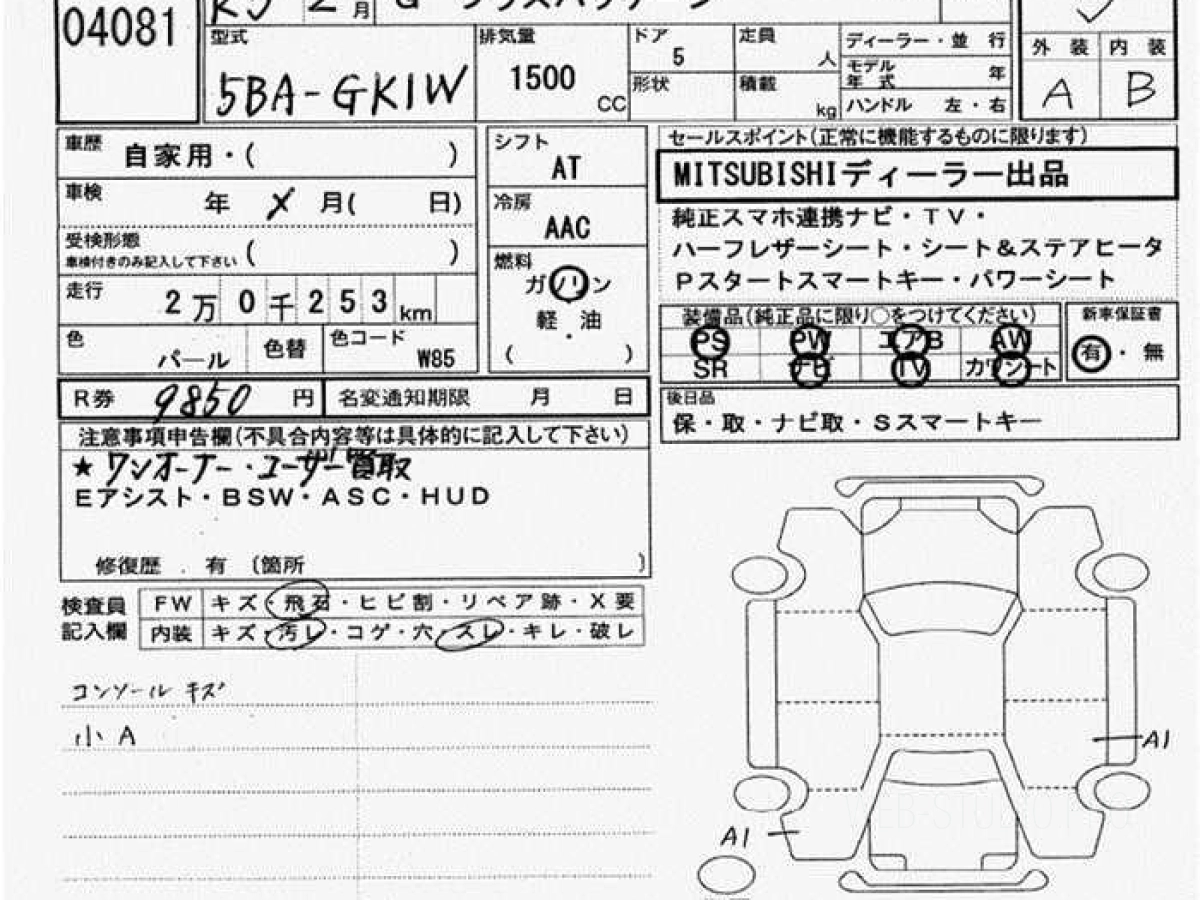 04081
月 G プラスパッケージ
型式 5BA-GK1W
排気量 1500 CC
ドア 5
形状
定員 人
積載 kg
ディーラー・並 行
モデル年式 年
ハンドル 左・右
外装 内装
A B
車歴 自家用・( )
車検 年 X 月( 日)
受検形態 車検付きのみ記入して下さい ( )
走行 2万0千253km
色 パール 色替 色コード W85
シフト AT
冷房 AAC
燃料 ガソリン
軽・油
( )
セールスポイント(正常に機能するものに限ります)
MITSUBISHIディーラー出品
純正スマホ連携ナビ・TV・
ハーフレザーシート・シート&ステアヒータ
Pスタートスマートキー・パワーシート
装備品(純正品に限り○をつけてください)
PS PW エアB AW
SR ナビ TV カワシート
新車保証書
有・無
R券 9850 円 名変通知期限 月 日
後日品
保・取・ナビ取・Sスマートキー
注意事項申告欄(不具合内容等は具体的に記入して下さい)
★ワンオーナー・ユーザー買取
Eアシスト・BSW・ASC・HUD
修復歴 . 有 〔箇所 〕
検査員記入欄
FW キズ・飛石・ヒビ割・リペア跡・X要
内装 キズ・汚レ・コゲ・穴・スレ・キレ・破レ
コンソール キズ
小A
A1
A1